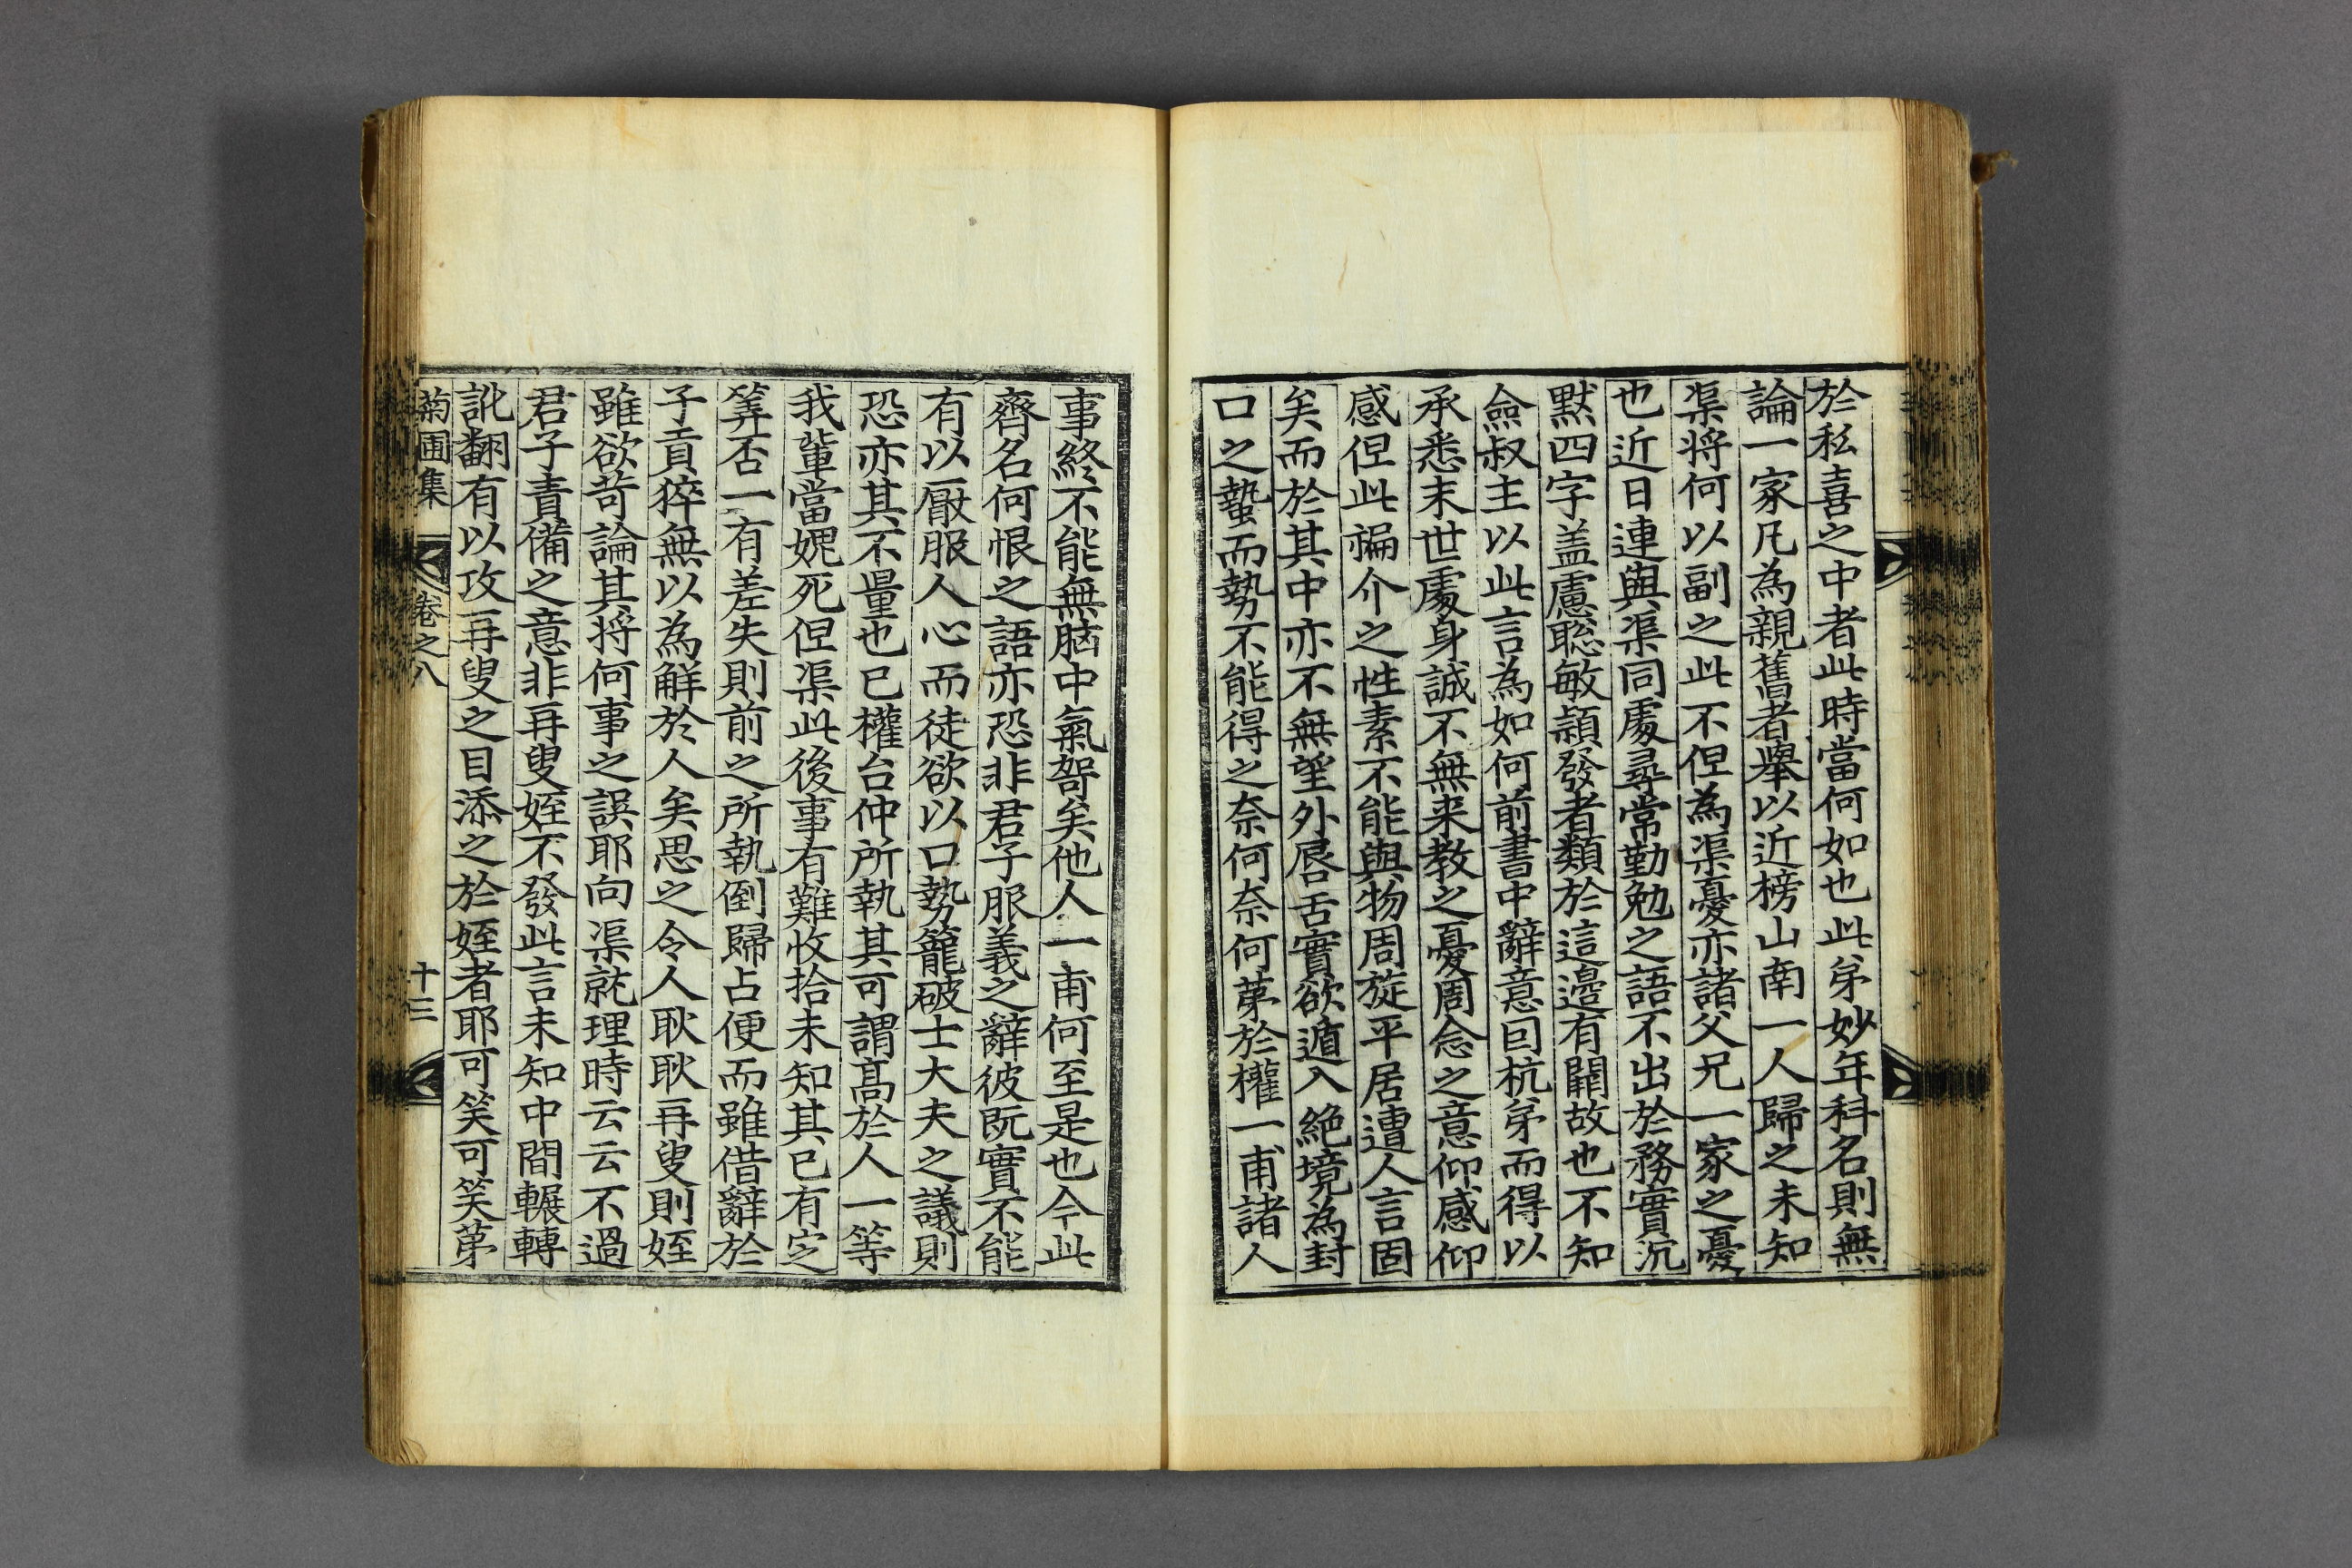 於私喜之中者此時當何如也此弟妙年科名則無
論一家凡為親舊者擧以近榜山南一人歸之未知
渠將何以副之此不但為渠憂亦諸父兄一家之憂
也近日連與渠同處尋常勤勉之語不出於務實沉
默四字盖慮聡敏穎發者類於這邊有闕故也不知
僉叔主以此言為如何前書中辭意回杭弟而得以
承悉末世處身誠不無来教之憂周念之意仰感仰
感但此褊介之性素不能與物周旋平居遭人言固
矣而於其中亦不無望外唇舌實欲遁入絶境為封
口之蟄而勢不能得之奈何奈何苐於權一甫諸人
事終不能無脑中氣矣他人一甫何至是也今此
齊名何恨之語亦恐非君子服義之辭彼既實不能
有以厭服人心而徒欲以口勢籠破士大夫之議則
恐亦其不量也已權台仲所執其可謂高於人一等
我輩當媿死但渠此後事有難收拾未知其已有定
筭否一有差失則前之所執倒歸占便而雖借辭於
子貢猝無以為觧於人矣思之令人耿耿再叟則姪
雖欲苛論其将何事之誤耶向渠就理時云云不過
君子責備之意非再叟姪不發此言未知中間輾轉
訛翻有以攻再叟之目添之於姪者耶可笑可笑苐
菊圃集 卷之八 十三